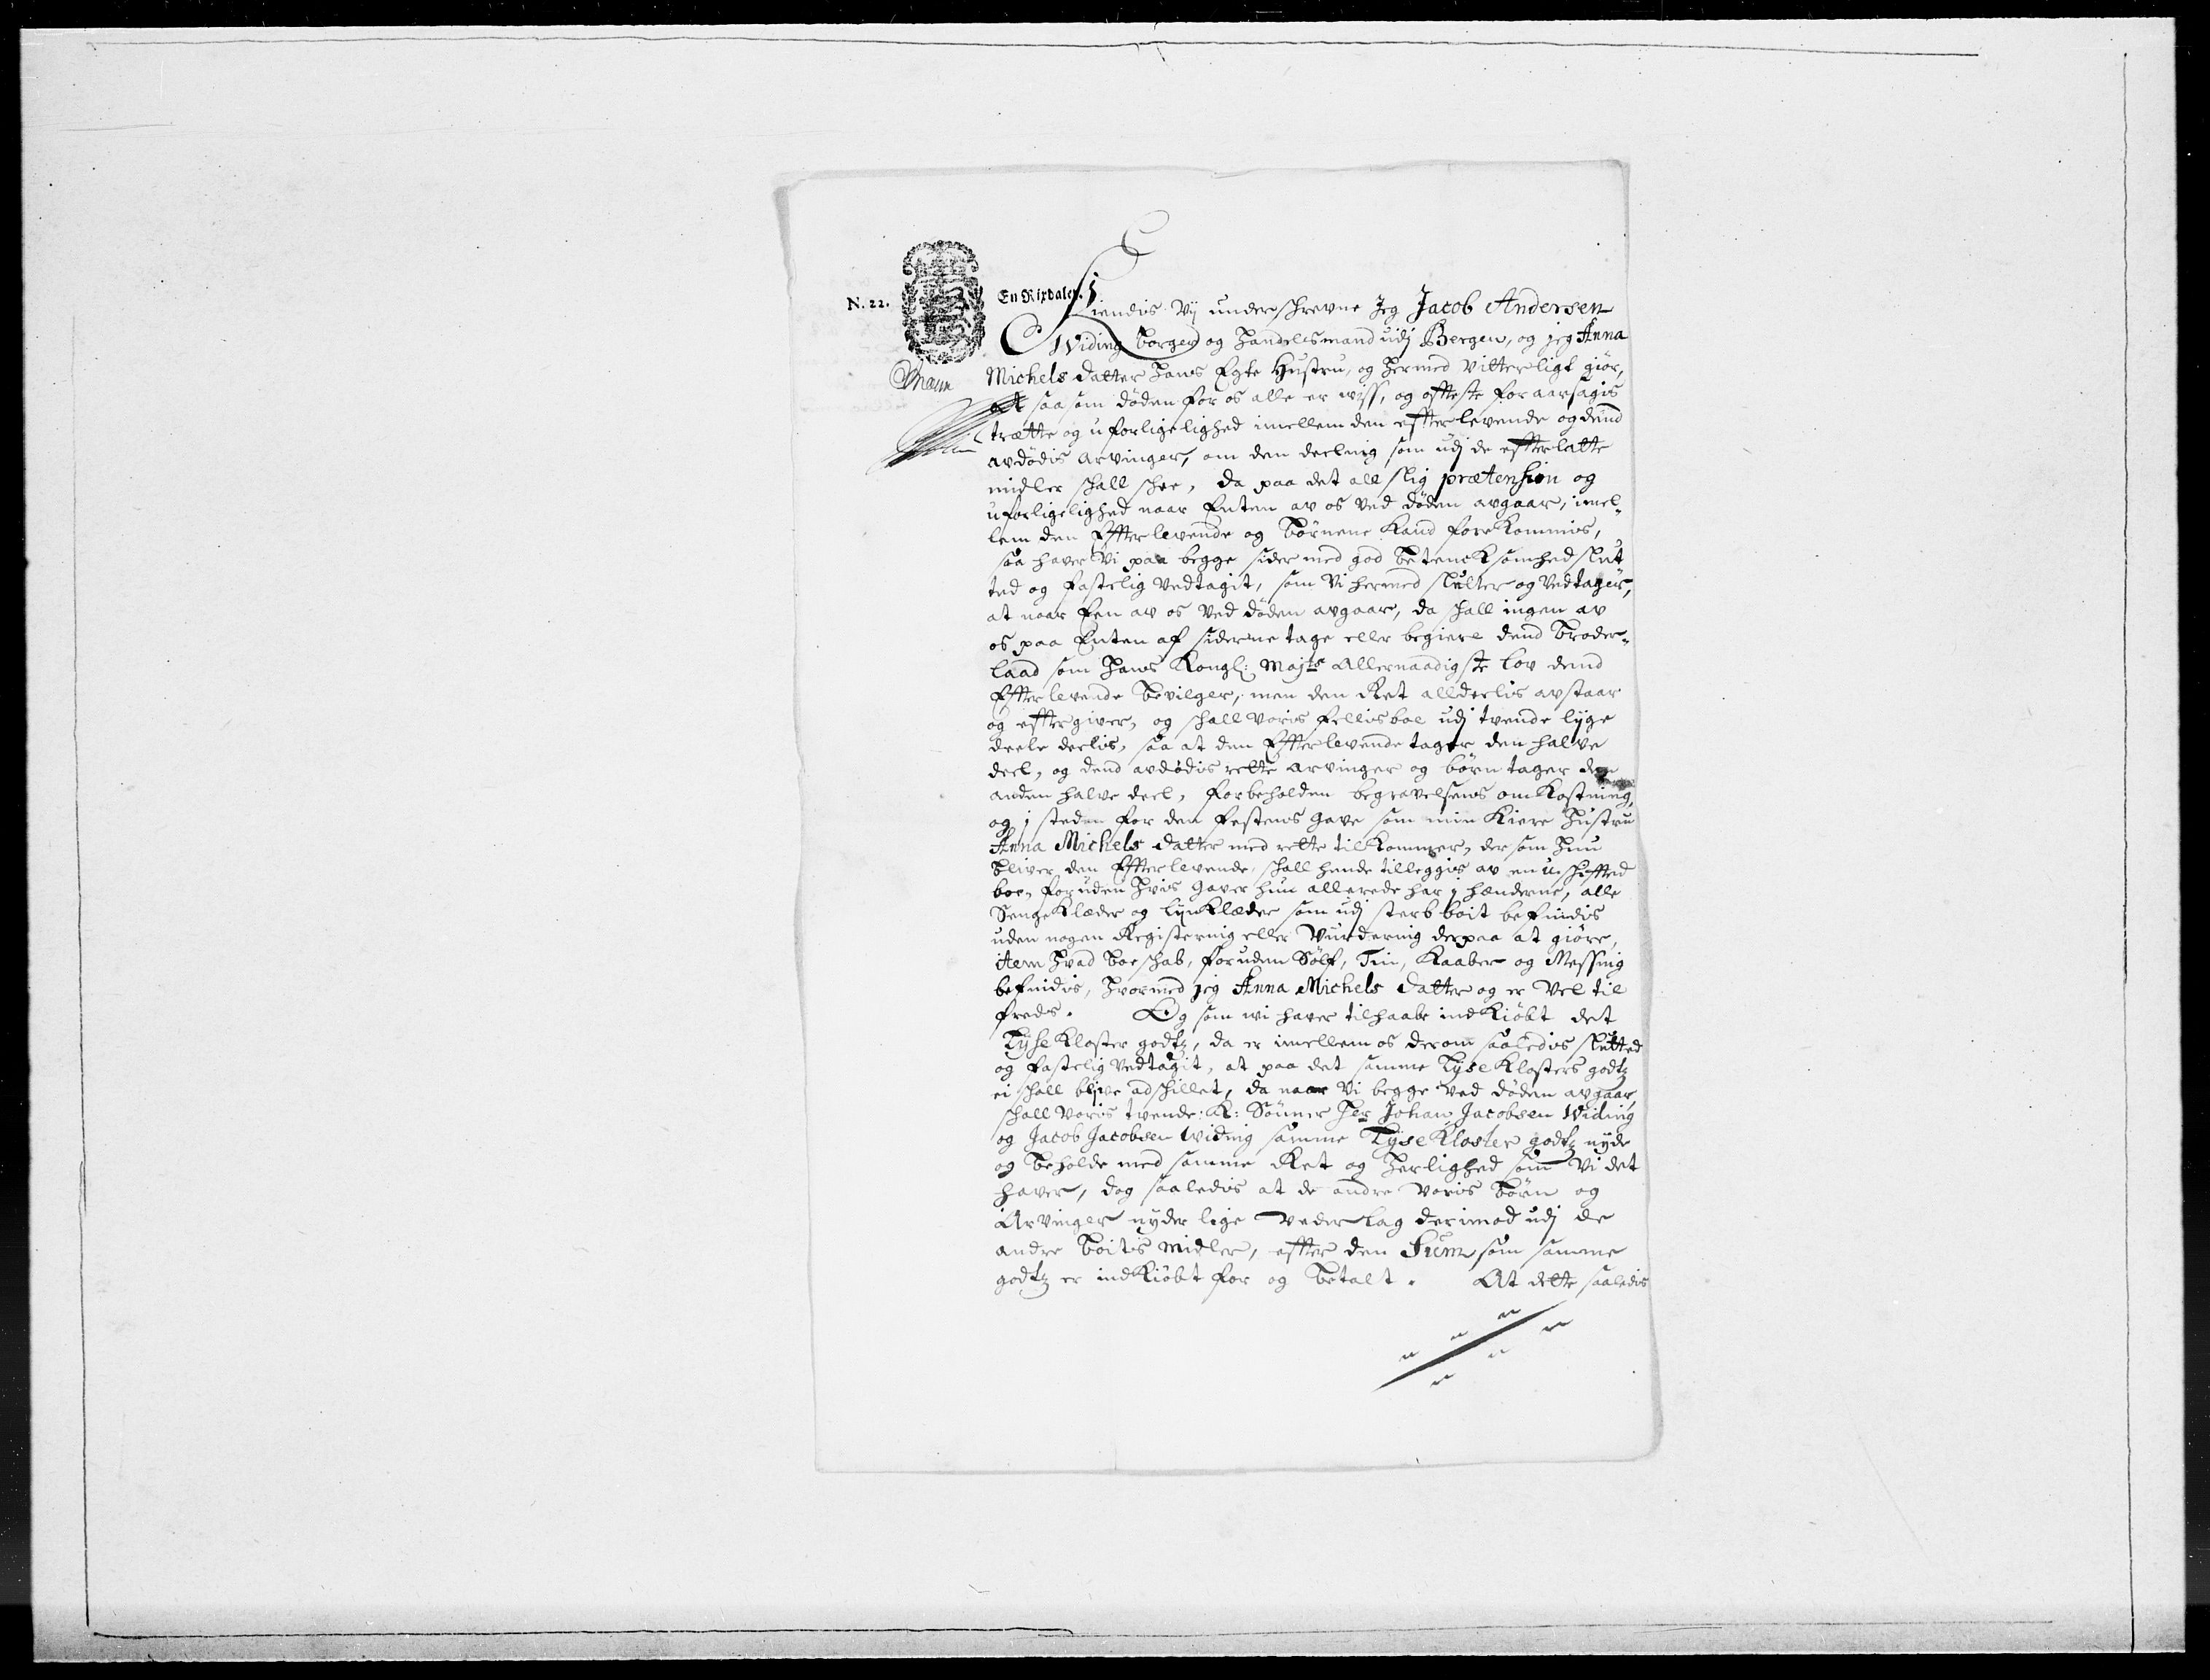 N. 22.
En Rixdaler.
Kiendis Vij underschrevne Jeg Jacob Andersen
Widing borger og Handelsmand udj Bergen, og jeg Anna
Michels datter Hans Egte Hustru, og Hermed Vitterligt giør,
at saasom døden for os alle er viss, og offteste foraarsagis
trætte og uforligelighed imellem den effterlevende og dend
avdødis Arvinger, om den deelnig som udj de effterlatte
midler schall schee, da paa det all slig prætension og
uforligelighed naar Enten av os ved døden avgaar, imel-
lem den Effterlevende og Børnene kand forekommis,
saa haver Vi paa begge sider med god Betencksomhed slut
ted og fastelig Vedtagit, som Vi hermed slutter og Vedtager,
at naar Een av os Ved døden avgaar, da schall ingen av
os paa Enten af siderne tage eller begiere dend Broder-
laad som Hans Kongl: Majts Allernaadigste lov dend
Effterlevende bevilger, men den Ret alldeelis avstaar
og efftergiver, og schall voris Fellisboe udj tvende lyge
deele deelis, saa at den Effterlevende tager den halve
deel, og dend avdødis rette arvinger og børn tager den
anden halve deel, forbeholden begravelsens omkostning,
og j steden for den festens Gave som min Kiere Hustru
Anna Michels datter med rette tilkommer, der som Hun
bliver den Effterlevende, schall hende tilleggis av en uschiffted
boe, foruden Hvis Gaver hun allerede har j hænderne, alle
Sengeklæder og Lynklæder som udj sterbboit befindis
uden nogen Registernig eller Vurdernig derpaa at giøre,
item Hvad Boeschab, foruden Sølf, Tin, Kaaber og Messing
befindis, Hvormed jeg Anna Michels datter og er Vel til
freds. Og som wi haver tilhaabe indkiøbt det
Lyse Kloster godtz, da er imellem os derom saaledis slutted
og fastelig Vedtagit, at paa det samme Lyse Klosters godtz
ei schall blive adschillet, da naar Vi begge ved døden avgaar,
schall voris tvende: K: Sønner Her Johan Jacobsen Widing
og Jacob Jacobsen Widing samme Lyse Kloster godtz nyde
og beholde med samme Ret og Herlighed som Vi det
haver, dog saaledis at de andre voris Børn og
Arvinger nyder lige Vederlag derimod udj de
andre boitis midler, effter den Sum, som samme
godtz er indkiøbt for og betalt. At dette saaledis